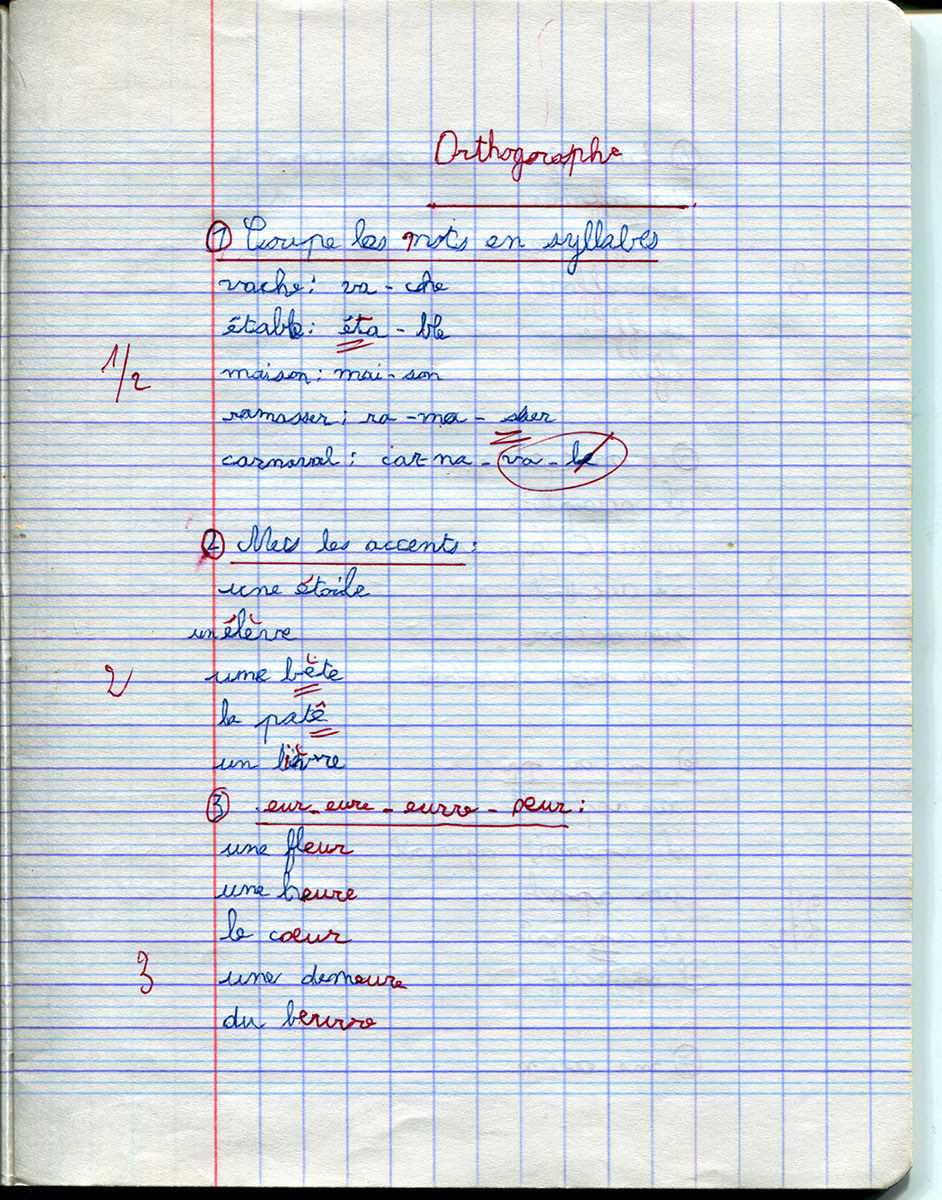 Orthographe
① Coupe les mots en syllabes
vache : va - che
étable : éta - ble
maison : mai - son
1/2
ramasser : ra - ma - sser
carnaval : car - na - va - le
② Mets les accents :
une étoile
un élève
2
une bète
la patê
un lièvre
③ eur - eure - eurre - œur :
une fleur
une heure
le cœur
3
une demeure
du beurre